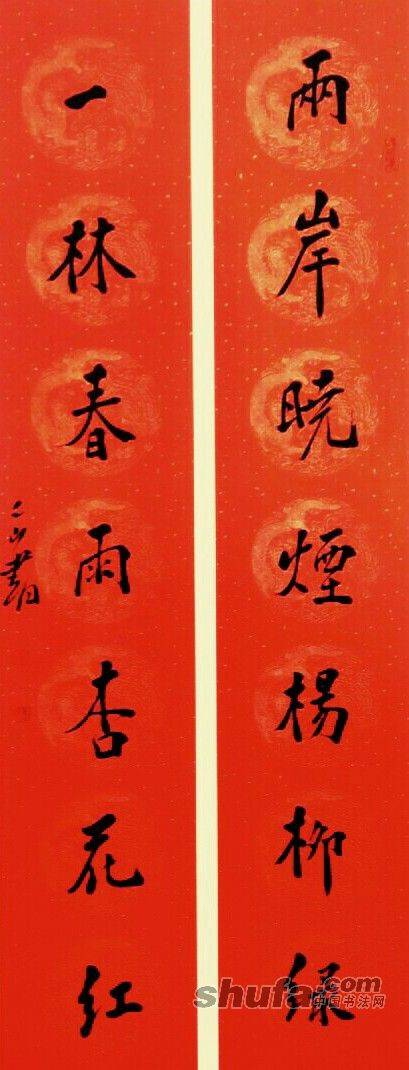 兩岸晓煙楊柳绿
一林春雨杏花红
shufa.com
中国书法网